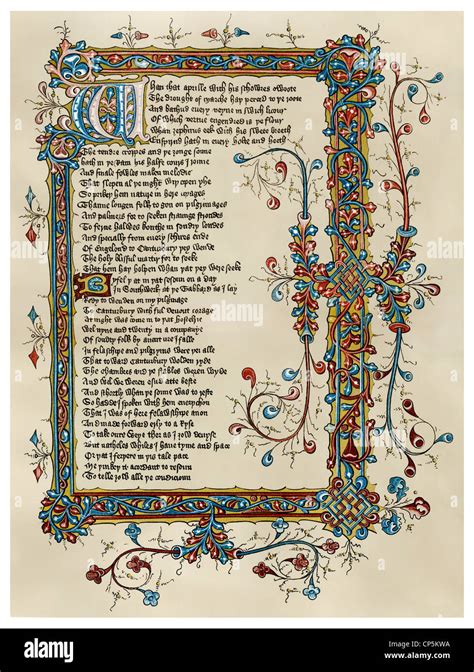 Whan that aprille with his schowres swoote
The drought of marche hay perced to ye roote
And bathud euery veyne in swich licour
Of which vertue engendred is ye flour
Whan zephirus eek with his swete breeth
Enspirud hath in euery holte and heeth
The tendre croppes and ye yonge sonne
hath in ye Ram his halfe cours I ronne
And smale fowles maken melodie
That slepen al ye night wyp open yhe
So priketh hem nature in here corages
Thanne longen folk to gon on pilgrimages
And palmers for to seeken straunge strondes
To ferne halwes kouthe in sondry londes
And specially from euery schires ende
Of Engelond to Canturbury þey wende
The holy blisful martir for to seeke
That hem hay holpen whan þat þey were seeke
Byfel þat in þat sesoun on a day
In Southwerk at ye Tabbard as I lay
Redy to wenden on my pilgrimage
To Canturbury with ful devout corage
At night was come in to þat hostelrie
Wel nyne and twenty in a companye
Of sondry folk by auenture I falle
In felaschipe and pilgryms were þei alle
That toward Canturbury wolden ryde
The chambres and ye stables weren wyde
And wel we weren esud atte beste
And schortly whan ye sonne was to reste
So hadde I spoken with hem euerychon
That I was of here felawschipe anon
And made forward erly to aryse
To take oure weye ther as I yow deuyse
But natheles whiles I haue tyme and space
Or þat I ferþere in þis tale pace
Me þinkeþ it acordant to resoun
To telle yow alle ye condicioun
alamy
alamy
Image ID: CP5KWA
www.alamy.com